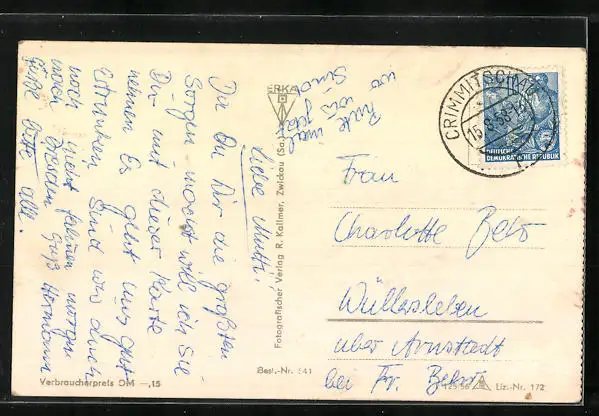 Liebe Mutti!
Da Du Dir die größten
Sorgen machst will ich sie
Dir mit dieser Karte
nehmen Es geht uns gut
Ertrunken sind wir auch
noch nicht fahren morgen
nach Gruß Hermann
Grüße bitte alle.
wo
wir jetzt
sind
ERKA
Fotografischer Verlag R. Kallmer, Zwickau (Sa.)
CRIMMITSCHAU
15.8.58
DEUTSCHE
DEMOKRATISCHE REPUBLIK
Frau
Charlotte
Wüllersleben
über Arnstadt
bei Fr.
Best.-Nr. 541
Verbraucherpreis DM —,15
Liz.-Nr. 172